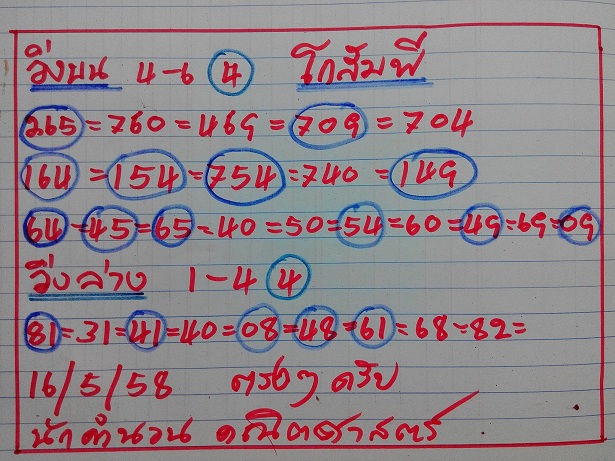 วิ่งบน 4-6 4 โกสัมพี
265=760=469=709=704
164=154=754=740=149
64=45=65=40=50=54=60=49=69=09
วิ่งล่าง 1-4 4
81=31=41=40=08=48=61=68=82=
16/5/58 ตรงๆ ครับ
นักคำนวน คณิตศาสตร์